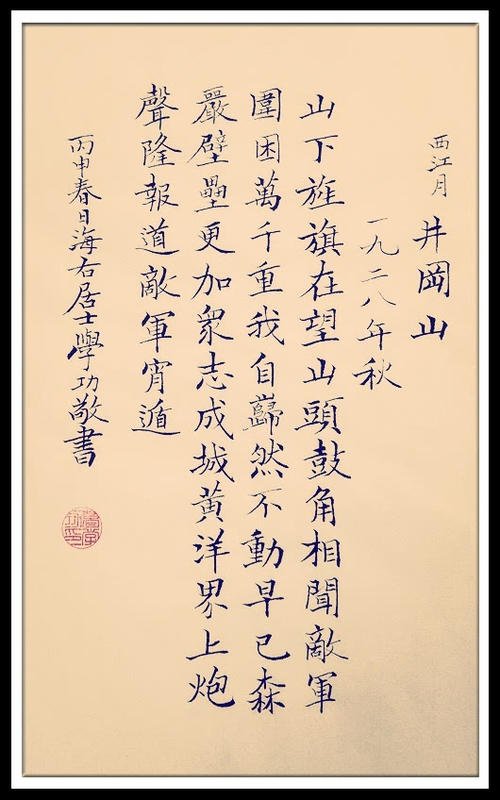 西江月 井岡山
一九二八年秋
山下旌旗在望山頭鼓角相聞敵軍
圍困萬千重我自巋然不動早已森
嚴壁壘更加衆志成城黃洋界上炮
聲隆報道敵軍宵遁
丙申春日海右居士學功敬書